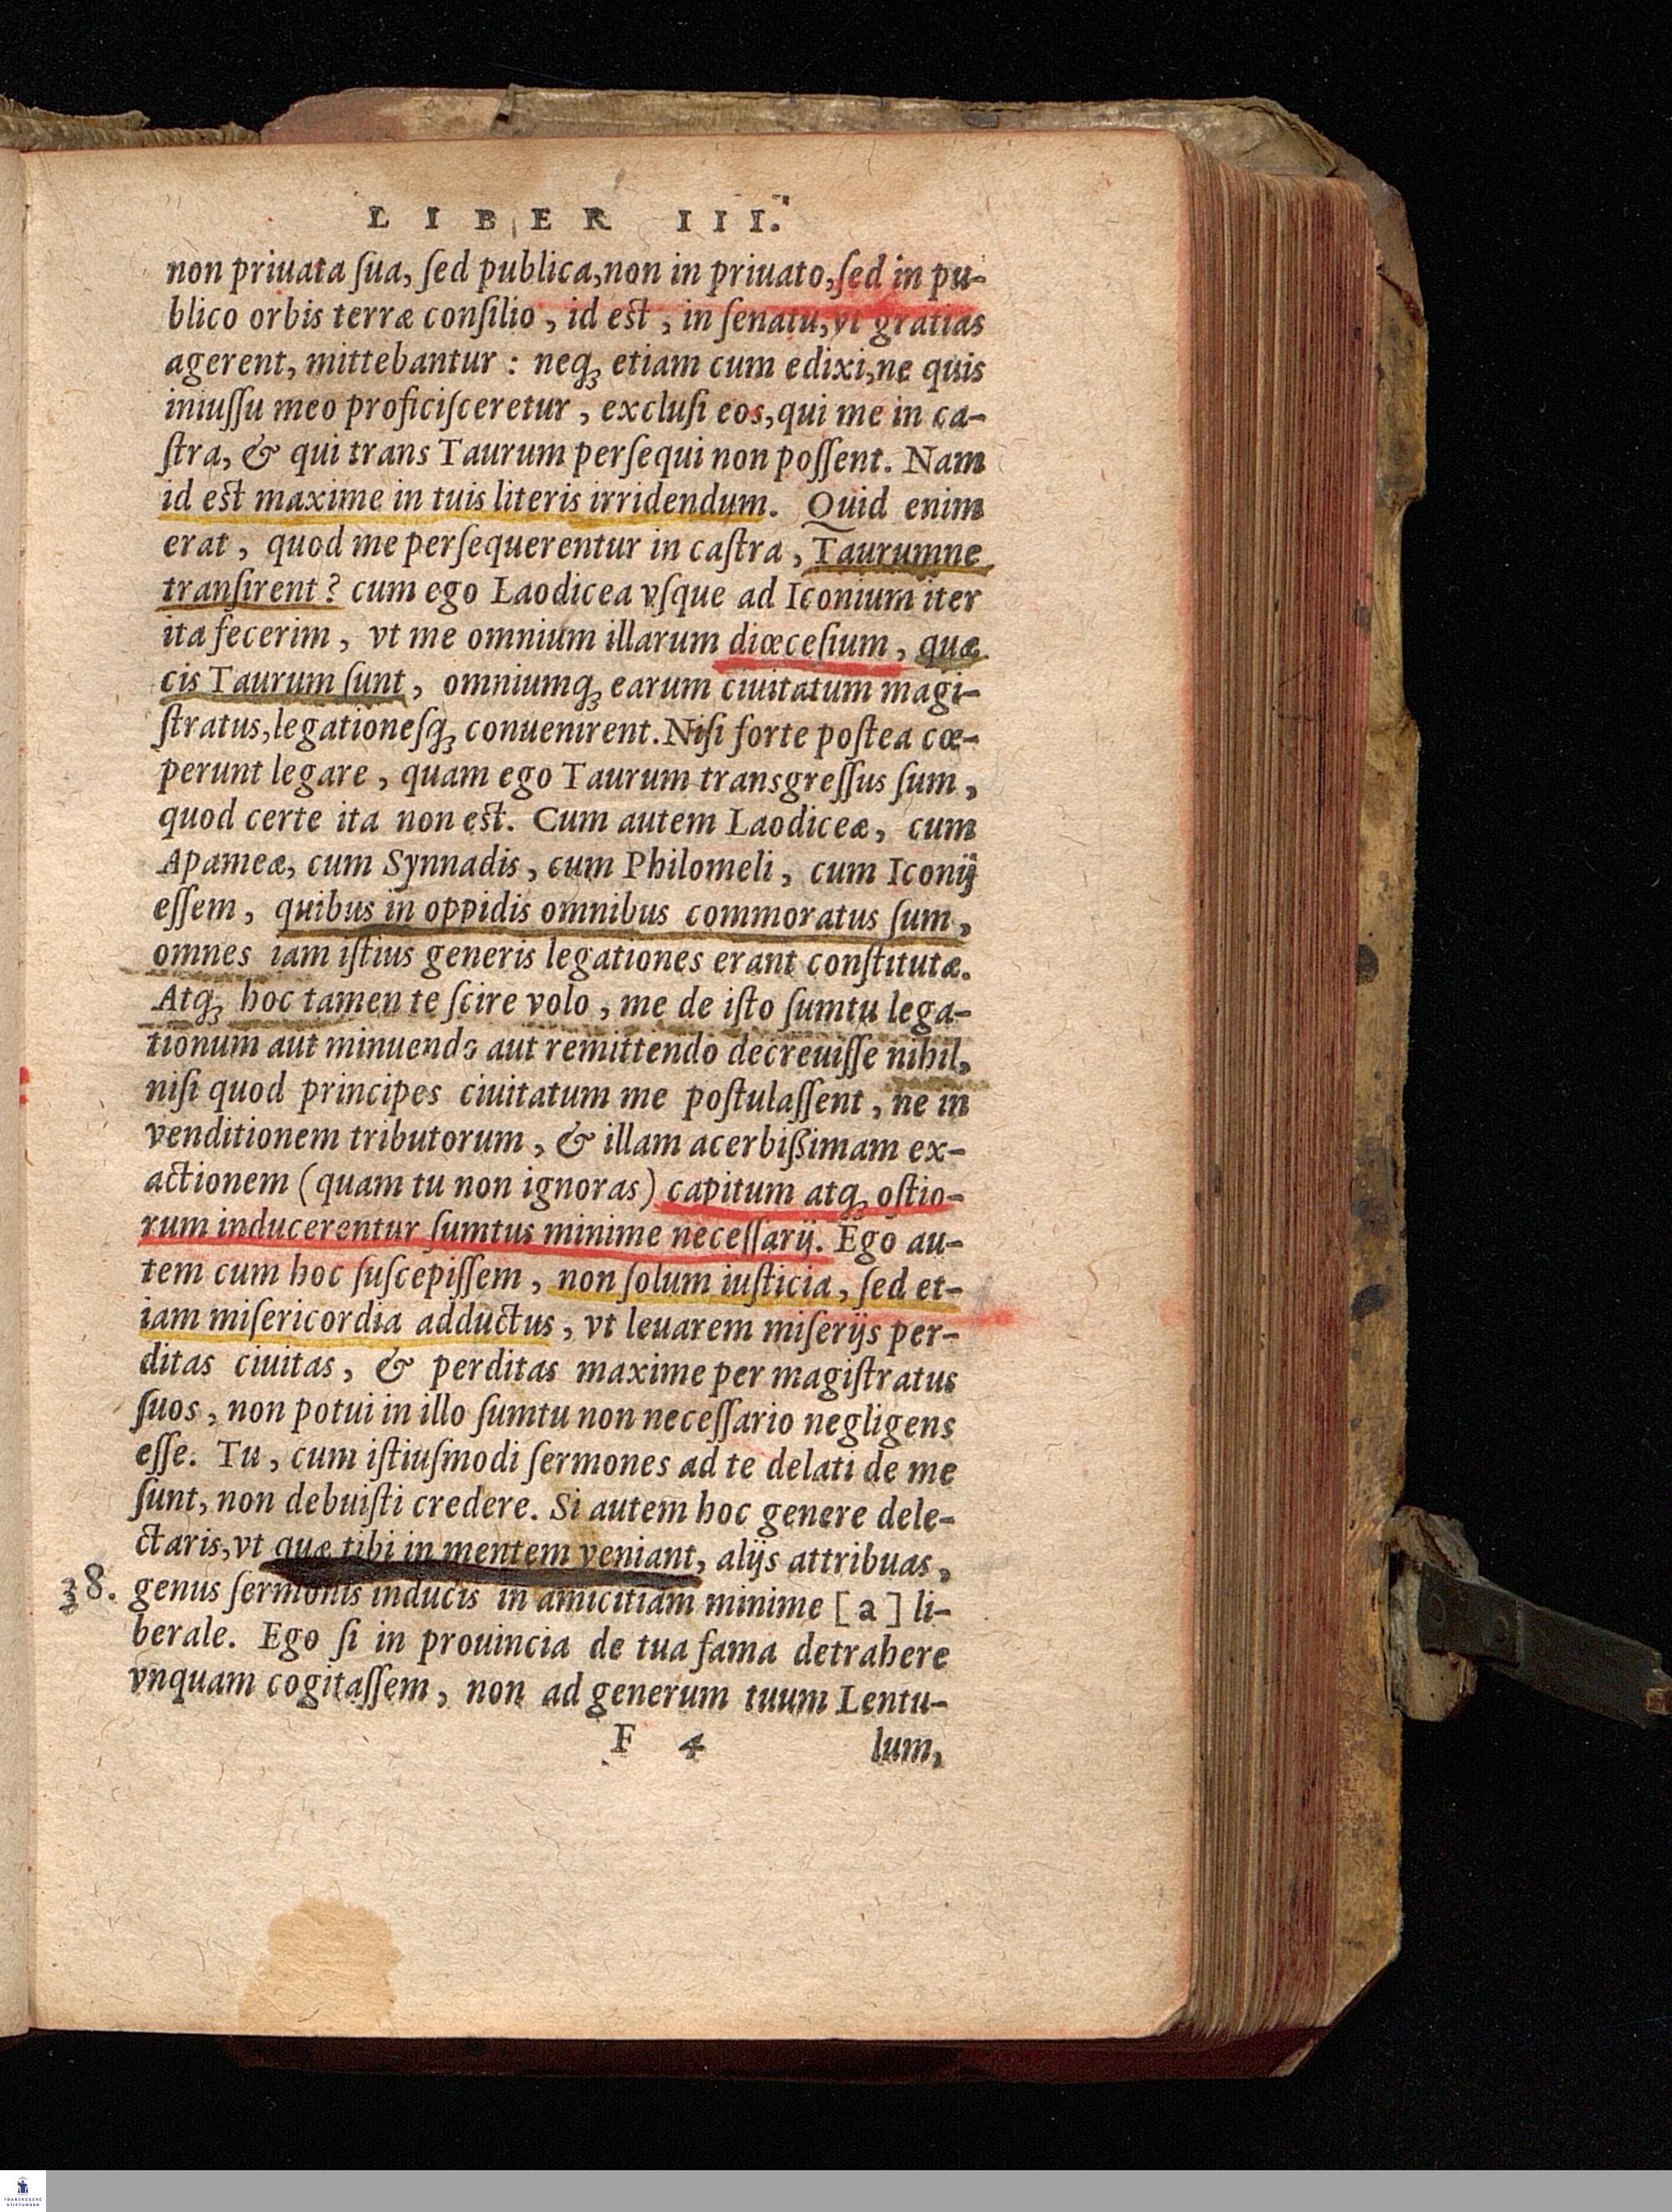 LIBER III.
non priuata ſua, ſed publica, non in priuato, ſed in pu-
blico orbis terræ conſilio, id est, in ſenatu, vt gratias
agerent, mittebantur: neq; etiam cum edixi, ne quis
iniuſſu meo proficiſceretur, excluſi eos, qui me in ca-
ſtra, & qui trans Taurum perſequi non poſſent. Nam
id est maxime in tuis literis irridendum. Quid enim
erat, quod me perſequerentur in caſtra, Taurumne
tranſirent? cum ego Laodicea vſque ad Iconium iter
ita fecerim, vt me omnium illarum diœceſium, quæ
cis Taurum ſunt, omniumq; earum ciuitatum magi-
ſtratus, legationeſq; conuenirent. Niſi forte poſtea cœ-
perunt legare, quam ego Taurum transgreſſus ſum,
quod certe ita non est. Cum autem Laodiceæ, cum
Apameæ, cum Synnadis, cum Philomeli, cum Iconij
eſſem, quibus in oppidis omnibus commoratus ſum,
omnes iam iſtius generis legationes erant conſtitutæ.
Atq; hoc tamen te ſcire volo, me de iſto ſumtu lega-
tionum aut minuendo aut remittendo decreuiſſe nihil,
niſi quod principes ciuitatum me poſtulaſſent, ne in
venditionem tributorum, & illam acerbißimam ex-
actionem (quam tu non ignoras) capitum atq; oſtio-
rum inducerentur ſumtus minime neceſſarij. Ego au-
tem cum hoc ſuſcepiſſem, non ſolum iuſticia, ſed et-
iam miſericordia adductus, vt leuarem miſerijs per-
ditas ciuitas, & perditas maxime per magiſtratus
ſuos, non potui in illo ſumtu non neceſſario negligens
eſſe. Tu, cum iſtiuſmodi ſermones ad te delati de me
ſunt, non debuiſti credere. Si autem hoc genere dele-
ctaris, vt quæ tibi in mentem veniant, alijs attribuas,
38. genus ſermonis inducis in amicitiam minime [a] li-
berale. Ego ſi in prouincia de tua fama detrahere
vnquam cogitaſſem, non ad generum tuum Lentu-
F 4 lum,
FRANCKESCHE
STIFTUNGEN